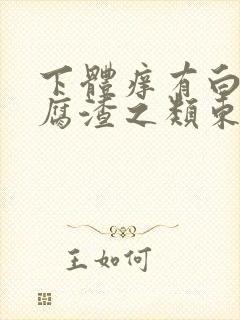 下體痒有白
腐渣之類東
王如何